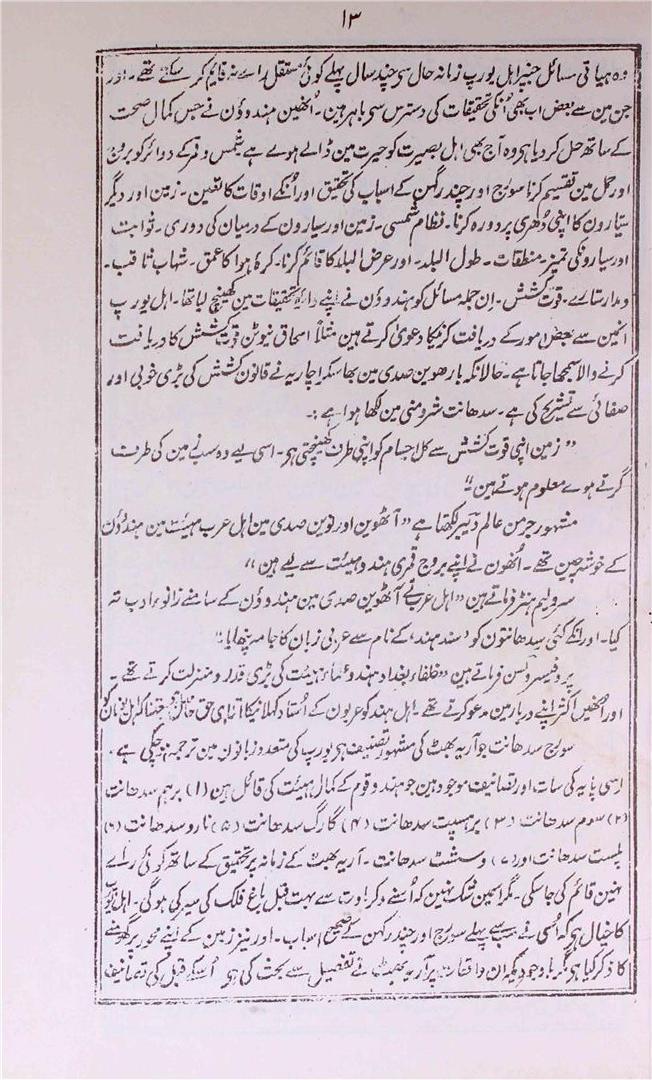 ۱۳
وہ ہیاتی مسائل جنپر اہل یورپ زمانہ حال سی چند سال پہلے کوئی مستقل راے نہ قایم کر سکے تھے۔ اور
جن مین سے بعض اب بھی اُنکی تحقیقات کی دسترس سی باہر ہین۔ اُنھین ہندوؤن نے جس کمال صحت
کے ساتھ حل کر دیا ہی وہ آج بھی اہل بصیرت کو حیرت مین ڈالے ہوے ہے شمس و قمر کے دوائر کو بروج
اور حمل مین تقسیم کرنا سورج اور چندر گہن کے اسباب کی تحقیق اور اُنکے اوقات کا تعین۔ زمین اور دیگر
ستیارون کا اپنی دُھری پر دورہ کرنا۔ نظام شمسی۔ زمین اور سیارون کے درمیان کی دوری۔ ثوابت
اور سیارونکی تمیز۔ منطقات۔ طول البلد۔ اور عرض البلد کا قائم کرنا۔ کرۂ ہوا کا عمق۔ شہاب ثاقب۔
و مدار ستارے۔ قوت کشش۔ اِن جملہ مسائل کو ہندوؤن نے اپنے دایرۂ تحقیقات مین کھینچ لیا تھا۔ اہل یورپ
انمین سے بعض امور کے دریافت کرنیکا دعویٰ کرتے ہین مثلاً اسحاق نیوٹن قوت کشش کا دریافت
کرنے والا سمجھا جاتا ہے۔ حالانکہ بارھوین صدی مین بھاسکراچاریہ نے قانون کشش کی بڑی خوبی اور
صفائی سے تشریح کی ہے۔ سدھانت شرومنی مین لکھا ہوا ہے :۔
“زمین اپنی قوت کشش سے کل اجسام کو اپنی طرف کھینچتی ہی۔ اسی لیے وہ سب زمین کی طرف
گرتے ہوے معلوم ہوتے ہین”
مشہور جرمن عالم ویبر لکھتا ہے “آٹھوین اور نوین صدی مین اہل عرب ہیئت مین ہندوُن
کے خوشہ چین تھے۔ اُنھون نے اپنے بروج قمری ہندو ہیئت سے لیے ہین”
سر ولیم ہنٹر فرماتے ہین “اہل عرب نے آٹھوین صدی مین ہندوؤن کے سامنے زانوے ادب تہ
کیا۔ اور انکے کئی سدھانتون کو ’سند ہند‘ کے نام سے عربی زبان کا جامہ پنھایا۔”
پروفیسر ولسن فرماتے ہین “خلفاء بغداد ہندو علماء ہیئت کی بڑی قدر و منزلت کرتے تھے۔
اور اُنھین اکثر اپنے دربار مین مدعو کرتے تھے۔ اہل ہند کو عربون کے اُستاد کہلانیکا اتنا ہی حق حاصل ہے جتنا کہ اہل یونان کو
سورج سدھانت جو آریہ بھٹ کی مشہور تصنیف ہی یورپ کی متعدد زبانون مین ترجمہ ہو چکی ہے۔
اسی پایہ کی سات اور تصانیف موجود ہین جو ہندو قوم کے کمال ہیئت کی قائل ہین (۱) برہم سدھانت
(۲) سوم سدھانت (۳) برہسپت سدھانت (۴) گارگ سدھانت (۵) نارو سدھانت (۶)
پلست سدھانت اور (۷) وسشٹ سدھانت۔ آریہ بھٹ کے زمانہ پر تحقیق کے ساتھ کوئی راے
نہین قائم کی جا سکی۔ مگر اسمین شک نہین کہ اُسنے وکرماوت سے بہت قبل باغ فلک کی سیر کی ہوگی۔ اہل یورپ
کا خیال ہی کہ اُسی نے سب سے پہلے سورج اور چندر گہن کے صحیح اسباب۔ اور نیز زمین کے اپنے محور پر گھومنے
کا ذکر کیا ہی مگر باوجودیکہ ان واقعات پر آریہ بھٹ نے تفصیل سے بحث کی ہی اُسکے قبل کی تصانیف